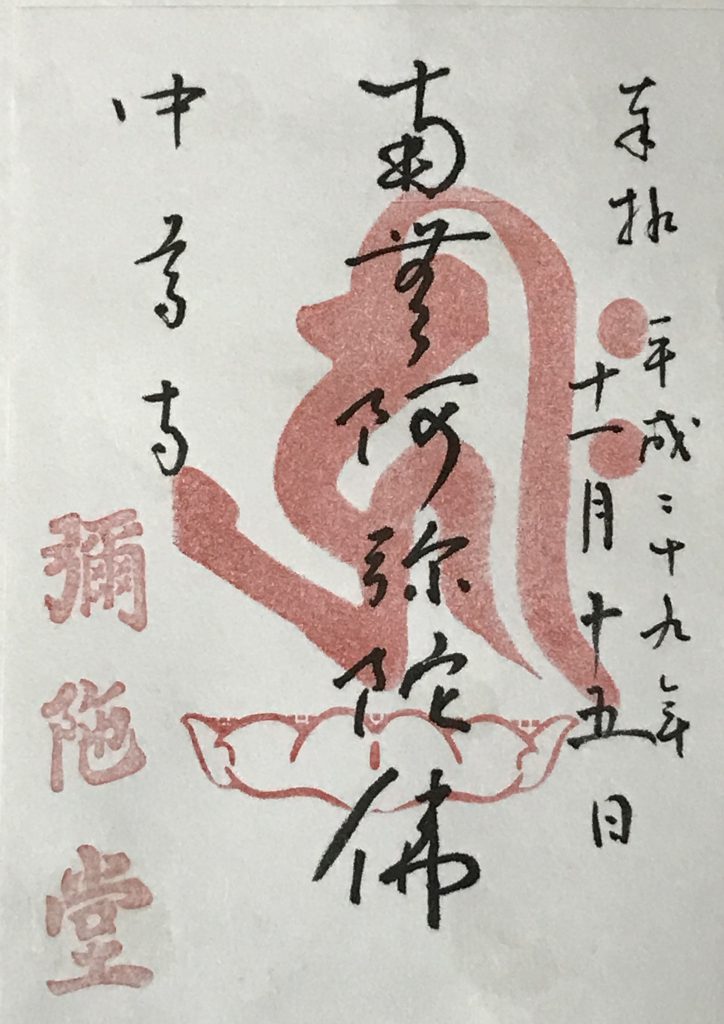 奉拝
平成二十九年
十一月十五日
南無阿弥陀佛
中尊寺
彌陀堂